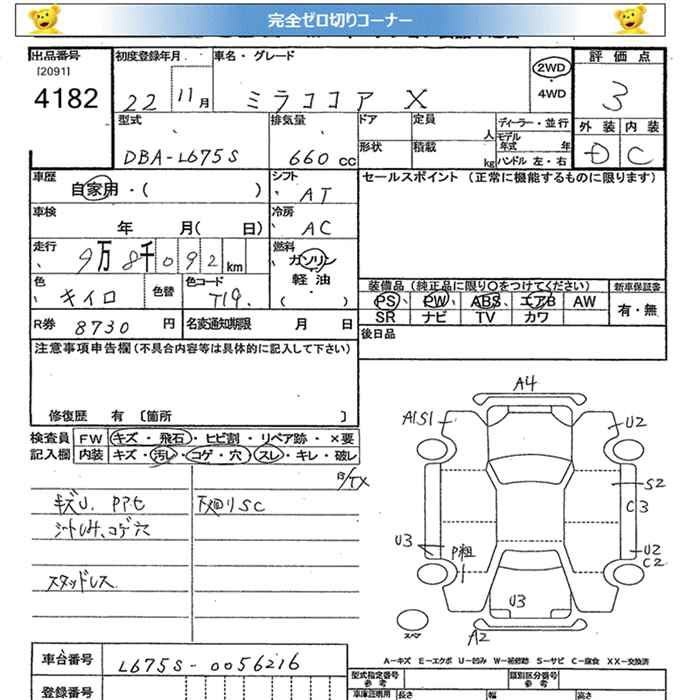 完全ゼロ切りコーナー
出品番号 初度登録年月 車名・グレード 評価点
[2091]
4182 22 11月 ミラココア X 2WD ・ 4WD 3
型式 排気量 ドア 定員 人 ディーラー・並行 外装 内装
モデル年式 年
DBA-L675S 660cc 形状 積載 kg ハンドル 左・右 D C
車歴 自家用・( ) シフト AT セールスポイント (正常に機能するものに限ります)
車検 年 月( 日) 冷房 AC
走行 9万8千092km 燃料 ガソリン 軽油 ( )
色 キイロ 色替 色コード T19 装備品(純正品に限り○をつけてください) 新車保証書
PS PW ABS エアB AW 有・無
SR ナビ TV カワ
R券 8730円 名変通知期限 月 日 後日品
注意事項申告欄(不具合内容等は具体的に記入して下さい)
修復歴 有 〔箇所 〕
検査員 FW キズ・飛石・ヒビ割・リペア跡・×要
記入欄 内装 キズ・汚レ・コゲ・穴・スレ・キレ・破レ
キズU, PPセ 下廻りSC
シートしみ、コゲ穴
スタッドレス
A4
A1S1
U2
S2
C3
U3
P粗
U2
C2
U3
スペア
A2
A-キズ E-エクボ U-凹み W-補修跡 S-サビ C-腐食 XX-交換済
車台番号 L675S-0056216
型式指定番号 参考 類別区分番号 参考
登録番号 車庫証明用 長さ 幅 高さ